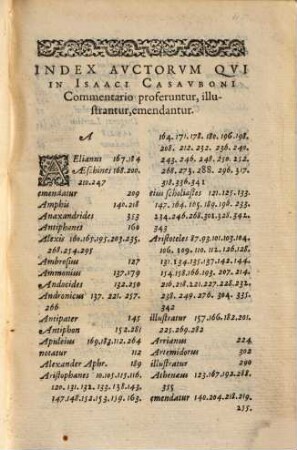 INDEX AVCTORVM QVI
IN ISAACI CASAVBONI
Commentario proferuntur, illu-
strantur, emendantur.
A
AElianus 167.184
AEschines 168.200.
211.247
emendatur 209
Amphis 140.218
Anaxandrides 353
Antiphanes 168
Alexis 160.165.195.205.235.
268.254.295
Ambrosius 127
Ammonius 137.179
Andocides 132.250
Andronicus 137. 221. 257.
268
Antipater 145
Antiphon 152.281
Apuleius 169.182.112.264
notatur 112
Alexander Aphr. 189
Aristophanes 10.105.115.116.
120.131.132.133.138.143.
147.148.152.161.159.163.
164.171.178.180.196.198.
208.212.232.236.240.
243.246.248.250.252.
268.273.288.296.317.
318.356.341
eius scholiastes 121.125.133.
147.164.105.189.196.233.
234.246.268.301.292.335.
343
Aristoteles 87.93.101.103.104.
106.109.110.112.126.128.
131.134.135.142.141.146.
154.158.166.193.207.214.
210.218.228.227.226.257.
238.249.276.265.340.
342
illustratur 157.166.182.201.
225.269.282
Arrianus 224
Artemidorus 302
illustratur 290
Athenæus 123.167.192.288.
355
emendatur 140.204.218.219.
235.